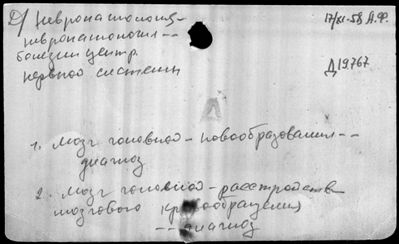 Д/ Невропатология-
невропатология--
болезни центр.
нервной системы
17/XI-58 А.Ф.
Д19767
Д
1. Мозг головной-новообразования--
диагноз
2. Мозг головной-расстройств
мозгового кровообращения
--диагноз